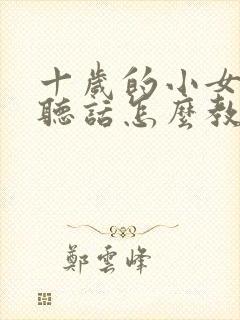 十歲的小女
聽話怎麼教
鄭雲峰